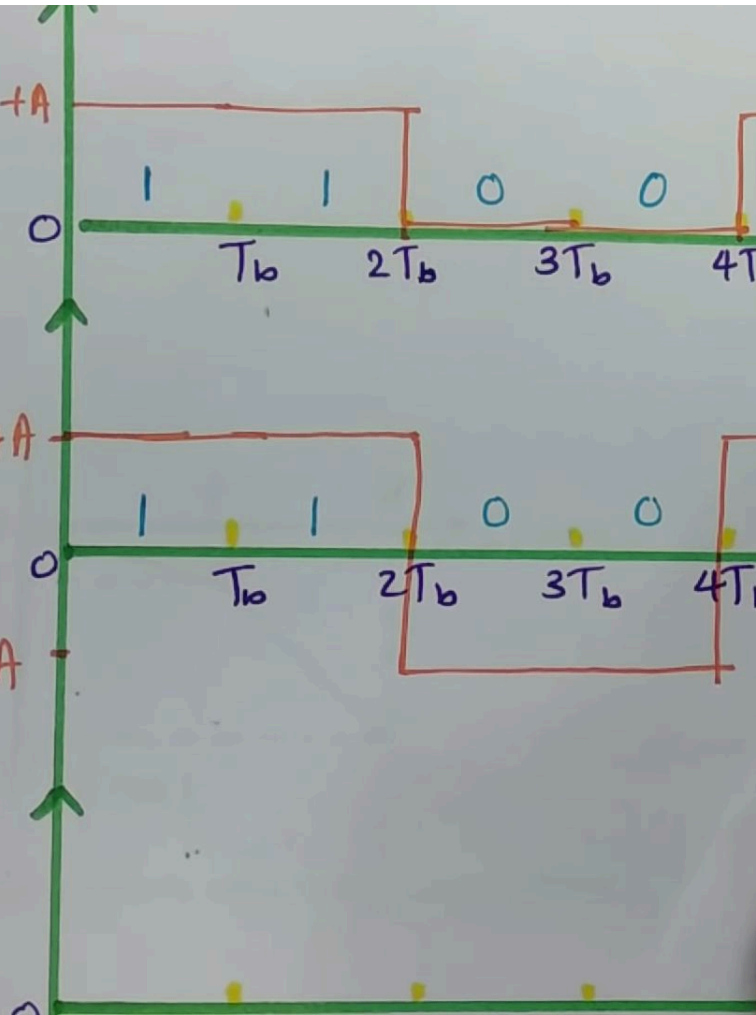 +A
1 1 0 0
0
Tb 2Tb 3Tb 4T
A
1 1 0 0
0
Tb 2Tb 3Tb 4T
A